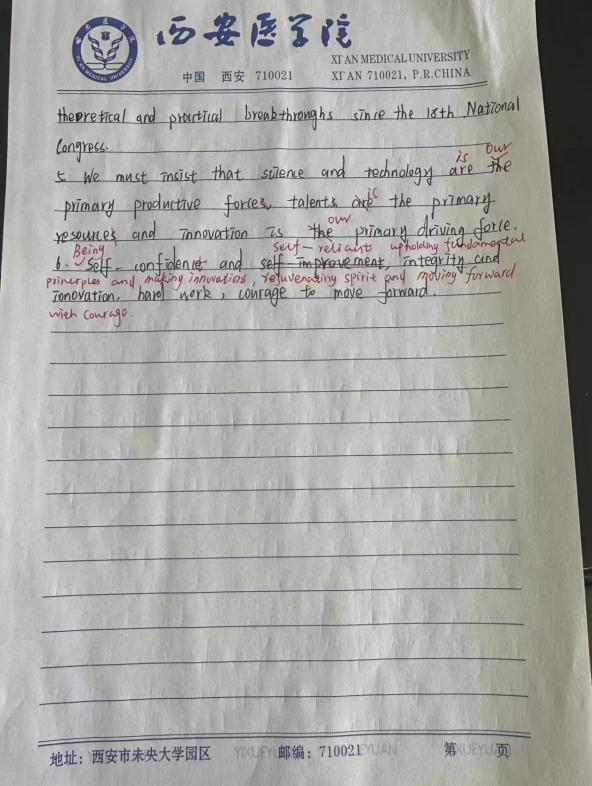 西安医学院
XI'AN MEDICAL UNIVERSITY
中国 西安 710021
XI'AN 710021, P.R.CHINA
XI'AN MEDICAL UNIVERSITY
theoretical and practical breakthroughs since the 18th National
Congress.
is our
5. We must insist that science and technology are the
primary productive forces, talents are the primary
is
our
resources and innovation is the primary driving force.
Being self-reliant upholding fundamental
6. Self-confidence and self-improvement, integrity and
principles and making innovations, rejuvenating spirit and moving forward
innovation, hard work, courage to move forward.
with courage.
地址: 西安市未央大学园区 邮编: 710021 第 页